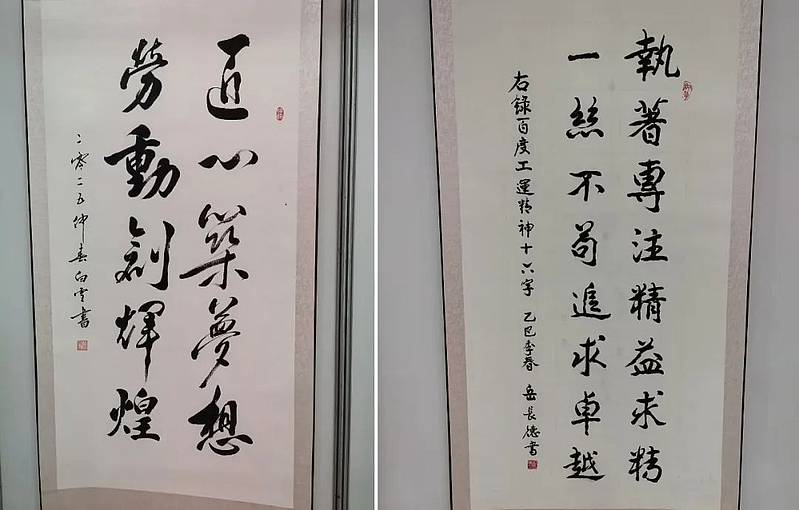 匠心築夢想
勞動創輝煌
二零二五仲春白雲書
執著專注精益求精
一絲不苟追求卓越
右錄百度工運精神十六字 乙巳季春 岳長德書